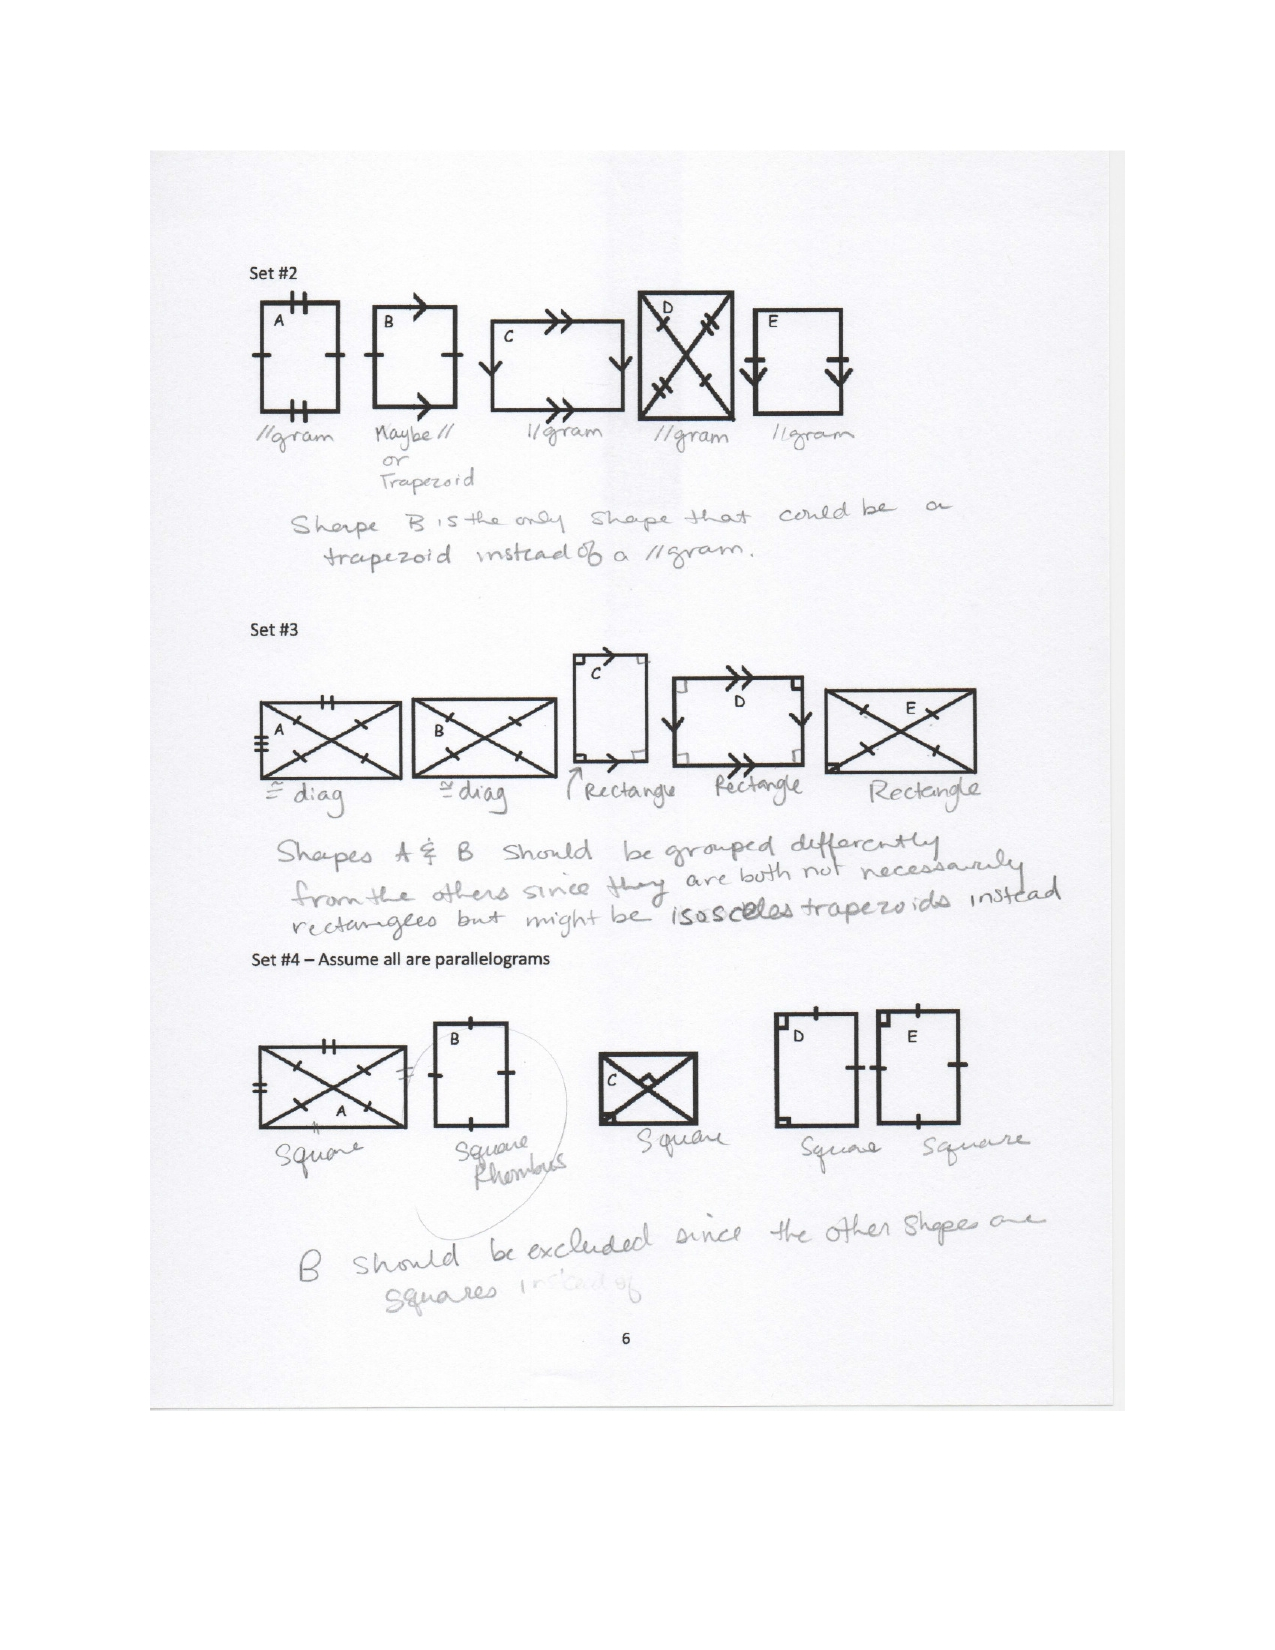 Set #2
A B C D E
//gram Maybe // //gram //gram //gram
or
Trapezoid
Shape B is the only shape that could be a
trapezoid instead of a //gram.
Set #3
A B C D E
≅ diag ≅ diag Rectangle Rectangle Rectangle
Shapes A & B should be grouped differently
from the others since they are both not necessarily
rectangles but might be isosceles trapezoids instead
Set #4 – Assume all are parallelograms
A B C D E
Square Square Square Square Square
Rhombus
B should be excluded since the other shapes are
squares instead of
6